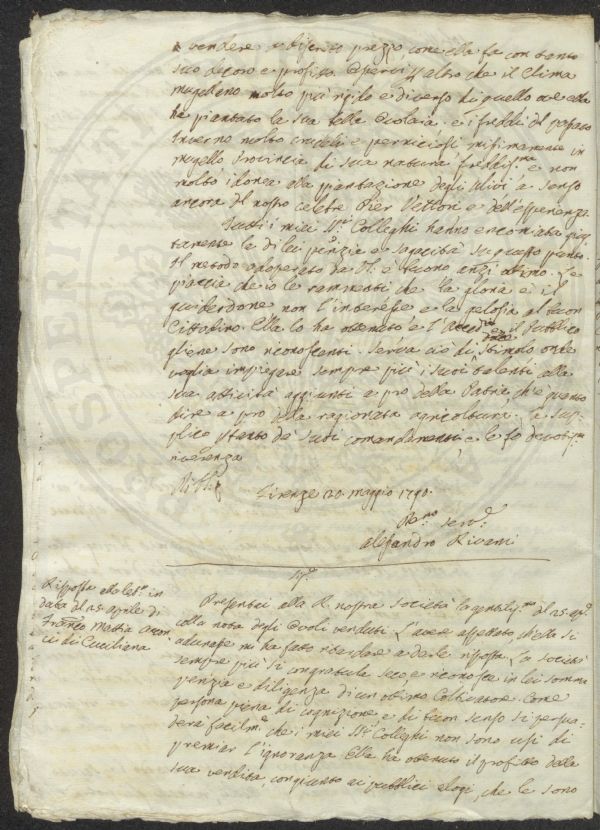 a vendere a discreto prezzo, come ella fa con tanto
suo decoro e profitto. Osservi per altro che il Clima
mugellano molto più rigido e diverso di quello ove ella
ha piantato la sua bella Ovolaia. e i freddi del passato
Inverno molto crudeli e perniciosi massimamente in
mugello Provincia di sua natura freddiss.ma e non
molto idonea alla piantazione degli ulivi a senso
ancora del nostro celebre Pier Vettori e dell'esperienza.
Tutti i miei SS.ri Colleghi hanno encomiata
la di lei perizia e sagacità su questo punto.
Il metodo adoperato da VS. è buono anzi ottimo. Le
piaccia che io le rammenti che la gloria è il
guiderdone non l'interesse e la gelosia al buon
Cittadino. Ella lo ha ottenuto e l' e il Pubblico
gliene sono riconoscenti. Serva ciò di stimolo onde
voglia impiegare sempre più i suoi talenti alla
sua attività aggiunti a pro della Patria, ch'è quanto
dire a pro della ragionata agricoltura; la sup-
plico de suoi comandamenti e le fo devotiss.ma
riverenza
Firenze 20. maggio 1790.
serv.e
alessandro Rivani
Risposta alla lett.a in
data del 25 aprile di
Franco Mattia
ci di Cuciliana
Presentai alla R. nostra società la gentiliss.ma del 25 ap.e
colla nota degli Ovoli venduti. L'avere aspettato ch'ella si
adunasse mi ha fatto ritardare a darle risposta. La società
sempre più si congratula seco e riconosce in lei somma
perizia e diligenza di un ottimo Coltivatore. Come
persona piena di cognizione e di buon senso si persua-
derà facilm.e che i miei SS.ri Colleghi non sono usi di
premiar l'ignoranza. Ella ha ottenuto il profitto della
sua vendita, congiunto ai pubblici elogi, che le sono